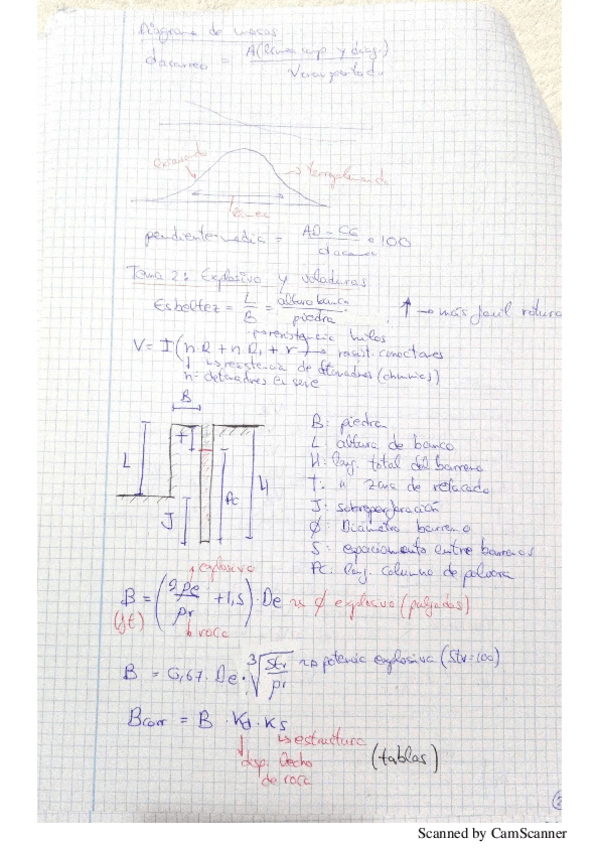 Diagrama de masas
dacarreo = A(línea comp y diag.) / Vtransportado
excavando
terraplenando
pendiente media = AD - CG / dacarreo · 100
Tema 2: Explosivo y voladuras
Esbeltez = L / B = altura banco / piedra
↑ → más facil rotura
por resistencia hilos
V = I (n R + n R1 + r) → resist. conectores
↳ resistencia de detonadores (ohmnios)
n = detonadores en serie
B
L
T
J
PC
H
B: piedra
L: altura de banco
H: long. total del barreno
T: " zona de retacado
J: sobreperforación
Ø: Diámetro barreno
S: espaciamiento entre barrenos
PC: long. columna de polvora
explosivo
B = (2ρe / ρr + 1,5) · De → Ø explosivo (pulgadas)
(ft)
roca
B = 0,67 · De · ∛(Stv / ρr) → potencia explosiva (Stv=100)
Bcorr = B · Kd · Ks
↳ estructura
disp. lecho
de roca
(tablas)
Scanned by CamScanner